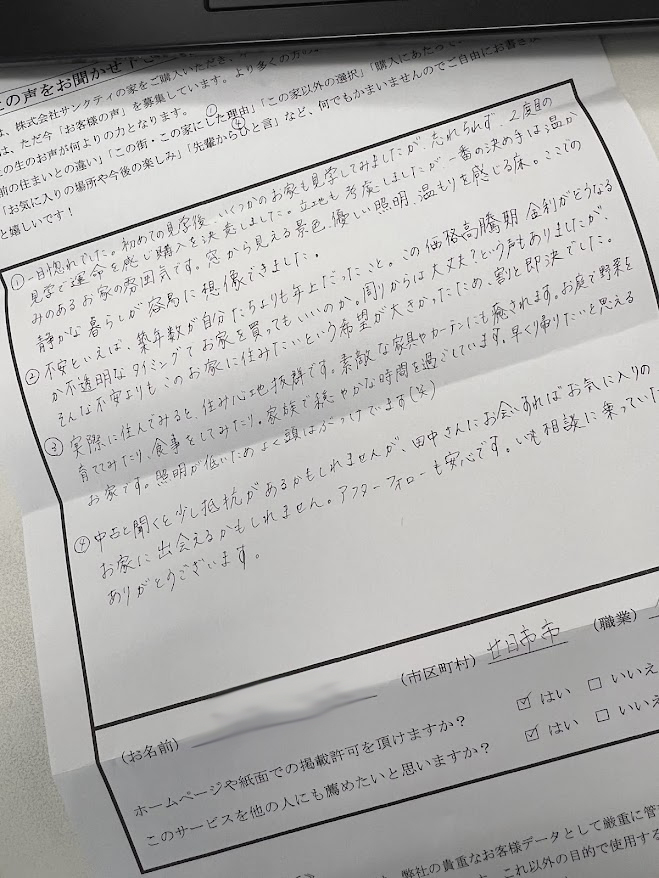 の声をお聞かせ下さ
は、株式会社サンクティの家をご購入いただき、
は、ただ今「お客様の声」を募集しています。より多くの方の
の生のお声が何よりの力となります。
① ④
前の住まいとの違い」「この街・この家にした理由」「この家以外の選択」「購入にあたって
「お気に入りの場所や今後の楽しみ」「先輩からひと言」など、何でもかまいませんのでご自由にお書き
と嬉しいです！
① 一目惚れでした。初めての見学後、いくつかのお家も見学してみましたが、忘れられず、2度目の
見学で運命を感じ購入を決意しました。立地も考慮しましたが、一番の決め手は温か
みのあるお家の雰囲気です。窓から見える景色、優しい照明、温もりを感じる床。ここでの
静かな暮らしが容易に想像できました。
② 不安といえば、築年数が自分たちよりも年上だったこと。この価格高騰期、金利がどうなる
か不透明なタイミングでお家を買ってもいいのか。周りからは大丈夫？という声もありましたが、
そんな不安よりもこのお家に住みたいという希望が大きかったため、割と即決でした。
③ 実際に住んでみると、住み心地抜群です。素敵な家具やカーテンにも癒されます。お庭で野菜を
育ててみたり、食事をしてみたり。家族で穏やかな時間を過ごしています。早くり帰りたいと思える
お家です。照明が低いためよく頭はぶつけています(笑)
④ 中古と聞くと少し抵抗があるかもしれませんが、田中さんにお会いすればお気に入りの
お家に出会えるかもしれません。アフターフォローも安心です。いつも相談に乗っていた
ありがとうございます。
(市区町村) 廿日市市 (職業)
(お名前)
ホームページや紙面での掲載許可を頂けますか？ ☑ はい □ いいえ
このサービスを他の人にも薦めたいと思いますか？ ☑ はい □ いいえ
弊社の貴重なお客様データとして厳重に管
これ以外の目的で使用する